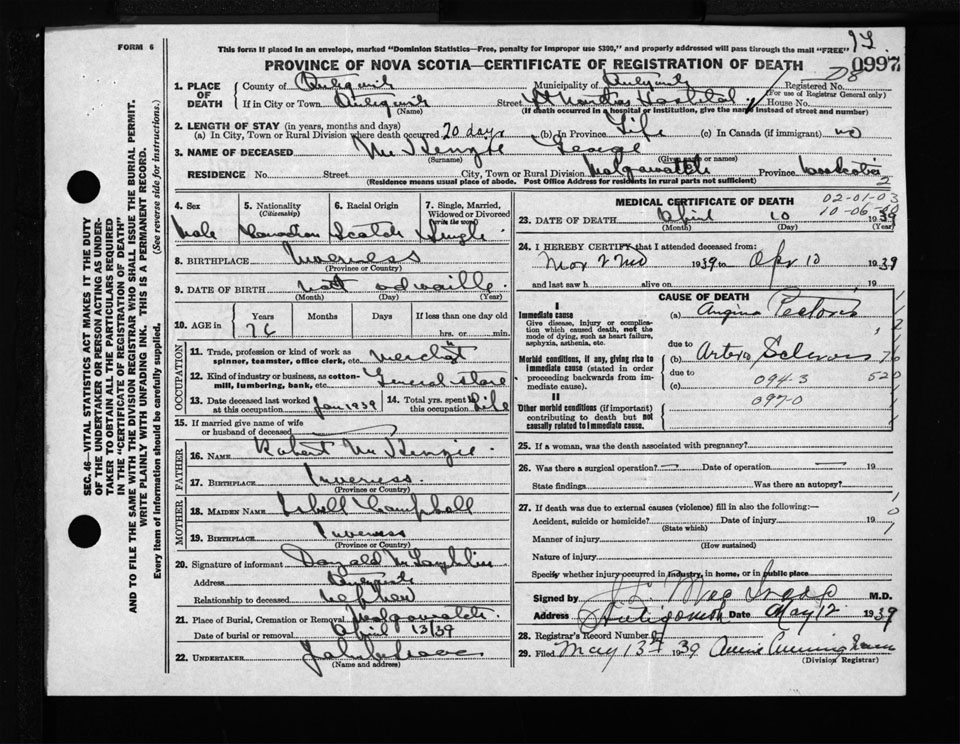 FORM 6
This form if placed in an envelope, marked "Dominion Statistics—Free, penalty for improper use $300," and properly addressed will pass through the mail "FREE"
PROVINCE OF NOVA SCOTIA—CERTIFICATE OF REGISTRATION OF DEATH
0997
SEC. 46—VITAL STATISTICS ACT MAKES IT THE DUTY
OF THE UNDERTAKER OR PERSON ACTING AS UNDER-
TAKER TO OBTAIN ALL THE PARTICULARS REQUIRED
IN THE "CERTIFICATE OF REGISTRATION OF DEATH"
AND TO FILE THE SAME WITH THE DIVISION REGISTRAR WHO SHALL ISSUE THE BURIAL PERMIT.
WRITE PLAINLY WITH UNFADING INK. THIS IS A PERMANENT RECORD.
Every item of information should be carefully supplied. (See reverse side for instructions.)
1. PLACE OF DEATH
County of Antigonish Municipality of Antigonish Registered No.
(For use of Registrar General only)
If in City or Town Antigonish Street St Marthas Hospital House No.
(Name) (If death occurred in hospital or institution, give the name instead of street and number)
2. LENGTH OF STAY (in years, months and days)
(a) In City, Town or Rural Division where death occurred 20 days (b) In Province Life (c) In Canada (if immigrant) no
3. NAME OF DECEASED McKenzie George
(Surname) (Given name or names)
RESIDENCE No. Street City, Town or Rural Division Mulgrave Province
(Residence means usual place of abode. Post Office Address for residents in rural parts not sufficient)
4. Sex 5. Nationality (Citizenship) 6. Racial Origin 7. Single, Married, Widowed or Divorced (write the word)
Male Canadian Scotch Single
8. BIRTHPLACE Inverness
(Province or Country)
9. DATE OF BIRTH not available
(Month) (Day) (Year)
10. AGE in Years Months Days If less than one day old
76 hrs. or min.
OCCUPATION
11. Trade, profession or kind of work as spinner, teamster, office clerk, etc. Merchant
12. Kind of industry or business, as cotton-mill, lumbering, bank, etc. General Store
13. Date deceased last worked at this occupation Jan 1939 14. Total yrs. spent in this occupation Life
15. If married give name of wife or husband of deceased
FATHER
16. NAME Robert McKenzie
17. BIRTHPLACE Inverness
(Province or Country)
MOTHER
18. MAIDEN NAME Isbell Campbell
19. BIRTHPLACE Inverness
(Province or Country)
20. Signature of informant Donald McLaughlin
Address Antigonish
Relationship to deceased nephew
21. Place of Burial, Cremation or Removal
Date of burial or removal April 13/39
22. UNDERTAKER
(Name and address)
MEDICAL CERTIFICATE OF DEATH
02-01-03
10-06-
23. DATE OF DEATH April 10 1939
(Month) (Day) (Year)
24. I HEREBY CERTIFY that I attended deceased from:
Mar 22nd 1939 to Apr 10 1939
and last saw h alive on 19
CAUSE OF DEATH
I
Immediate cause
Give disease, injury or complication which caused death, not the mode of dying, such as heart failure, asphyxia, asthenia, etc.
(a) Angina Pectoris
due to
Morbid conditions, if any, giving rise to immediate cause (stated in order proceeding backwards from immediate cause).
(b) Arterio Sclerosis
due to
(c) 094-3
520
II
Other morbid conditions (if important) contributing to death but not causally related to immediate cause.
097-0
25. If a woman, was the death associated with pregnancy?
26. Was there a surgical operation? — Date of operation — 19
State findings Was there an autopsy?
27. If death was due to external causes (violence) fill in also the following:—
Accident, suicide or homicide? Date of injury 19
(State which)
Manner of injury
(How sustained)
Nature of injury
Specify whether injury occurred in industry, in home, or in public place
Signed by M.D.
Address Antigonish Date May 12 1939
28. Registrar's Record Number
29. Filed May 13th 1939 Annie Cunningham
(Division Registrar)